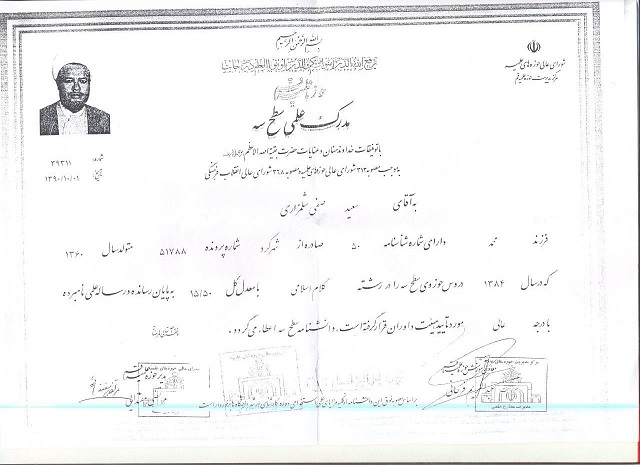 بسم الله الرحمن الرحیم
یرفع الله الذین آمنوا منکم و الذین اوتوا العلم درجات
شورای عالی حوزه های علمیه
مرکز مدیریت حوزه علمیه قم
مدرک علمی سطح سه
شماره: ۳۹۳۱۱
تاریخ: ۱۳۹۰/۱۰/۰۱
با توفیقات خداوند منان و عنایات حضرت بقیة الله الاعظم
به موجب مصوبه ۳۱۳ شورای عالی حوزه های علمیه و مصوبه ۳۶۸ شورای عالی انقلاب فرهنگی
به آقای سعید صفی شلمزاری
فرزند محمد دارای شماره شناسنامه ۵۰ صادره از شهرکرد شماره پرونده ۵۱۷۸۸ متولد سال ۱۳۶۰
که در سال ۱۳۸۴ دروس حوزوی سطح سه را در رشته کلام اسلامی با معدل کل ۱۵/۵۰ به پایان رسانده و رساله علمی نامبرده
با درجه عالی مورد تایید هیئت داوران قرار گرفته است، دانشنامه سطح سه اعطاء می گردد.
مدیر حوزه علمیه قم